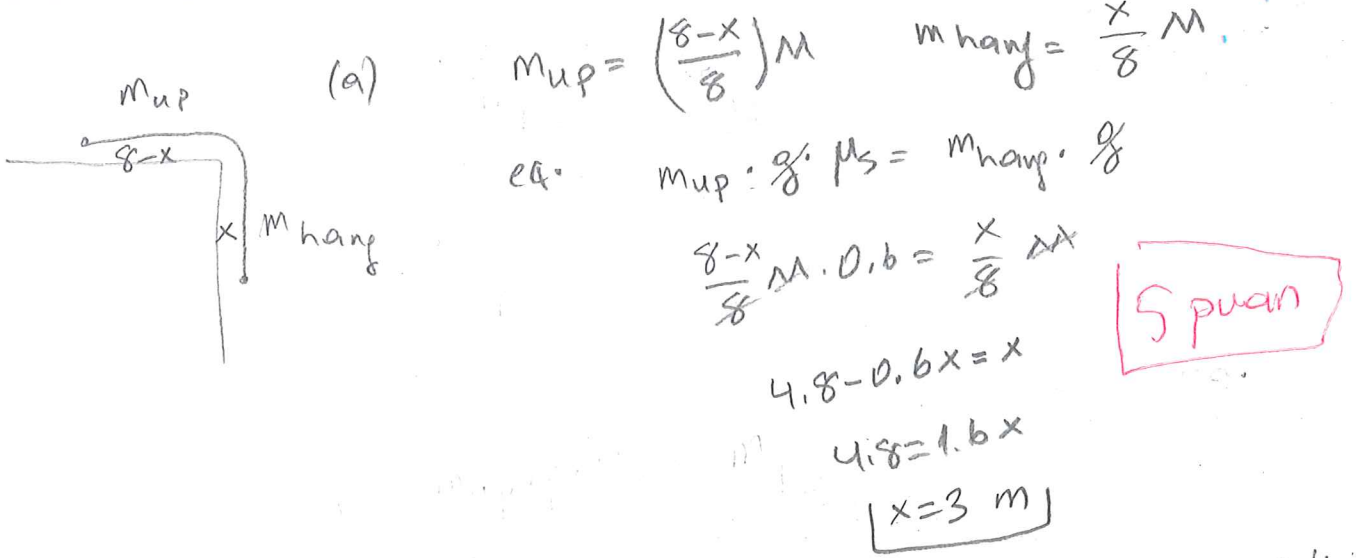 (a) m up = (8-x/8) M m hang = x/8 M.
m up
8-x
x m hang
eq. m up . g . μs = m hang . g
8-x/8 M . 0.6 = x/8 M
5 puan
4.8-0.6x = x
4.8=1.6x
x=3 m